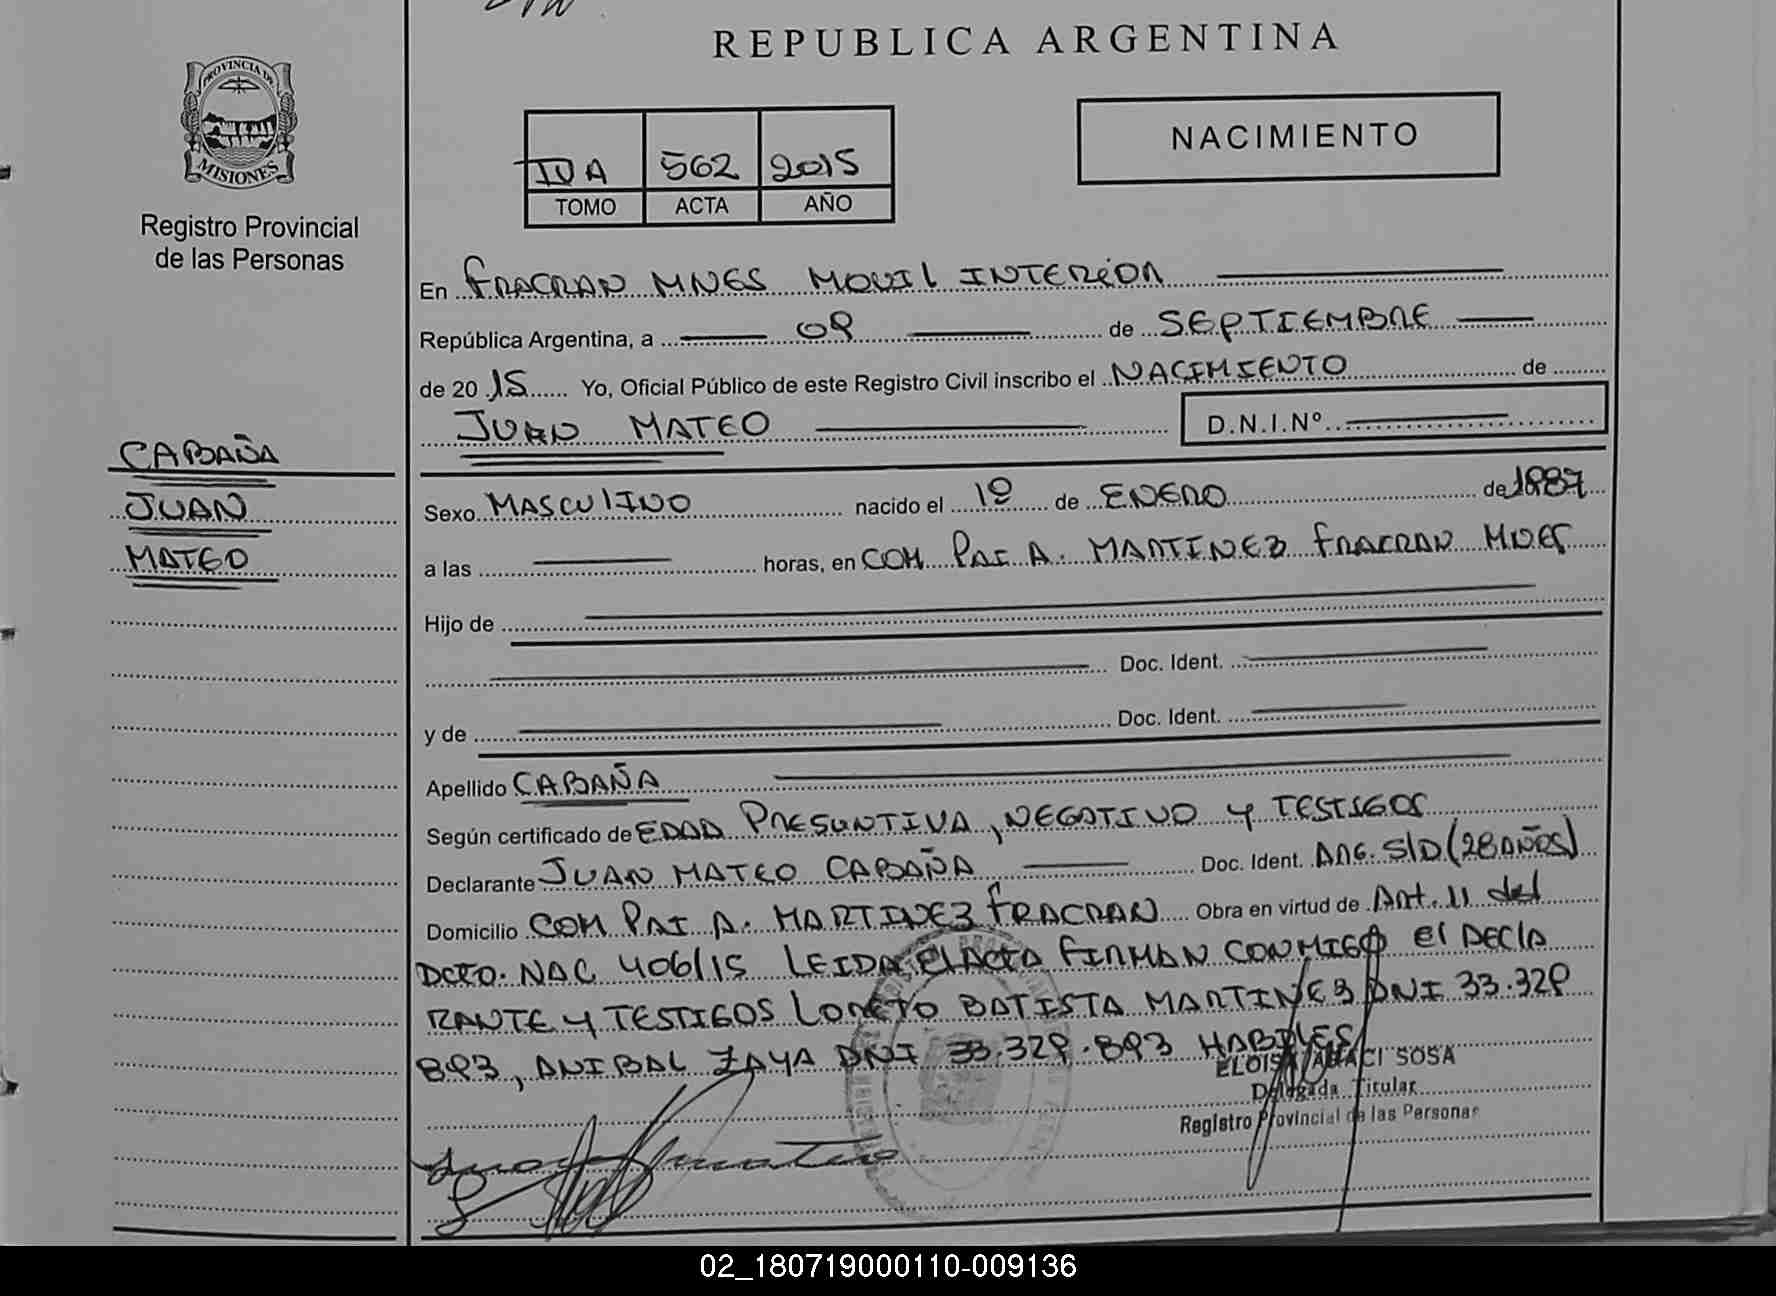 REPUBLICA ARGENTINA
PROVINCIA DE
MISIONES
Registro Provincial
de las Personas
IV A 562 2015
TOMO ACTA AÑO
NACIMIENTO
En FRACRAN MNES MOVIL INTERIOR
República Argentina, a 09 de SEPTIEMBRE
de 20 15 Yo, Oficial Público de este Registro Civil inscribo el NACIMIENTO de
JUAN MATEO D.N.I.Nº
CABAÑA
JUAN
MATEO
Sexo MASCULINO nacido el 1º de ENERO de 1987
a las horas, en COM PAI A. MARTINEZ FRACRAN MNES
Hijo de
Doc. Ident.
y de Doc. Ident.
Apellido CABAÑA
Según certificado de EDAD PRESUNTIVA, NEGATIVO Y TESTIGOS
Declarante JUAN MATEO CABAÑA Doc. Ident. ARG. S/D (28 AÑOS)
Domicilio COM PAI A. MARTINEZ FRACRAN Obra en virtud de Art. 11 del
DCTO. NAC 406/15 LEIDA EL ACTA FIRMAN CONMIGO El DECLA
RANTE Y TESTIGOS LORETO BATISTA MARTINEZ DNI 33.329
893, ANIBAL ZAYA DNI 33.329.893 HABILES
ELOISA SOSA
Delegada Titular
Registro Provincial de las Personas
Juan mateo
02_180719000110-009136